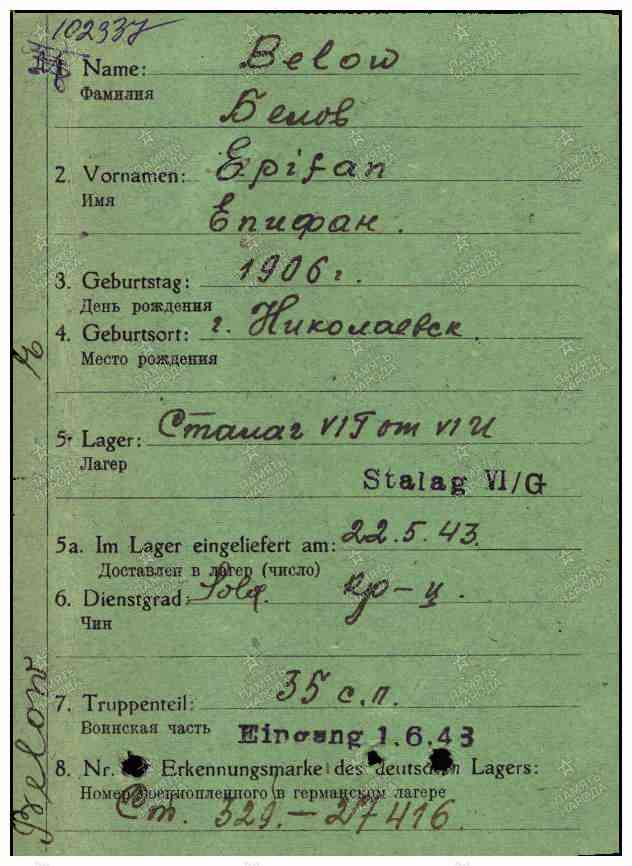 102937
1. Name: Below
Фамилия
Белов
2. Vornamen: Epifan
Имя
Епифан.
3. Geburtstag: 1906 г.
День рождения
4. Geburtsort: г. Николаевск.
Место рождения
5. Lager: Сталаг VI Г от VI И
Лагер
Stalag VI/G
5a. Im Lager eingeliefert am: 22.5.43.
Доставлен в лагер (число)
6. Dienstgrad: Sold. кр-ц.
Чин
7. Truppenteil: 35 с.п.
Воинская часть
Eingang 1.6.43
8. Nr. Erkennungsmarke des deutschen Lagers:
Номер военнопленного в германском лагере
Ст. 329.-27416.
Below E
ПАМЯТЬ НАРОДА